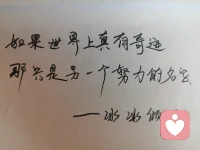 如果世界上真有奇迹
那只是另一个努力的名字
——冰冰